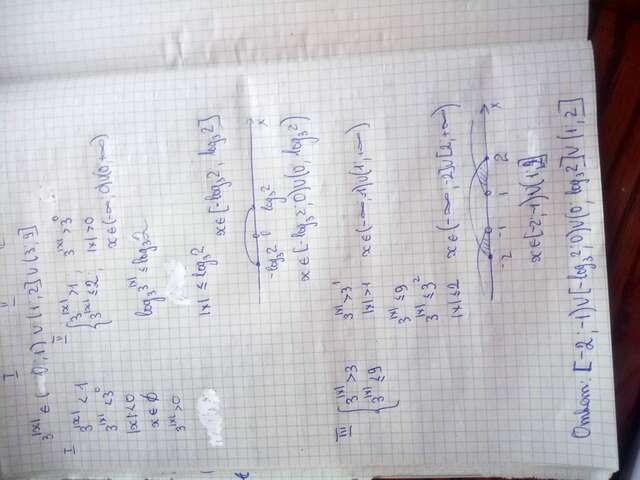 I II
3^|x| ∈ (-∞; 0; 1) ∪ (1, 2] ∪ (3; 9]
I
3^|x| < 1
3^|x| < 3^0
|x| < 0
x ∈ ∅
3^|x| > 0
II
{ 3^|x| > 1, 3^|x| > 3^0
3^|x| ≤ 2, |x| > 0
x ∈ (-∞, 0) ∪ (0, +∞)
log₃3^|x| ≤ log₃2
|x| ≤ log₃2
x ∈ [-log₃2, log₃2]
-log₃2 0 log₃2 x
x ∈ [-log₃2; 0) ∪ (0, log₃2)
III
{ 3^|x| > 3 3^|x| > 3^1
3^|x| ≤ 9 |x| > 1 x ∈ (-∞, -1) ∪ (1, +∞)
3^|x| ≤ 9
3^|x| ≤ 3^2
|x| ≤ 2 x ∈ (-∞, -2] ∪ [2, +∞)
-2 -1 1 2 x
x ∈ [-2; -1) ∪ (1; 2]
Ответ: [-2; -1) ∪ [-log₃2; 0) ∪ (0; log₃2] ∪ (1; 2]